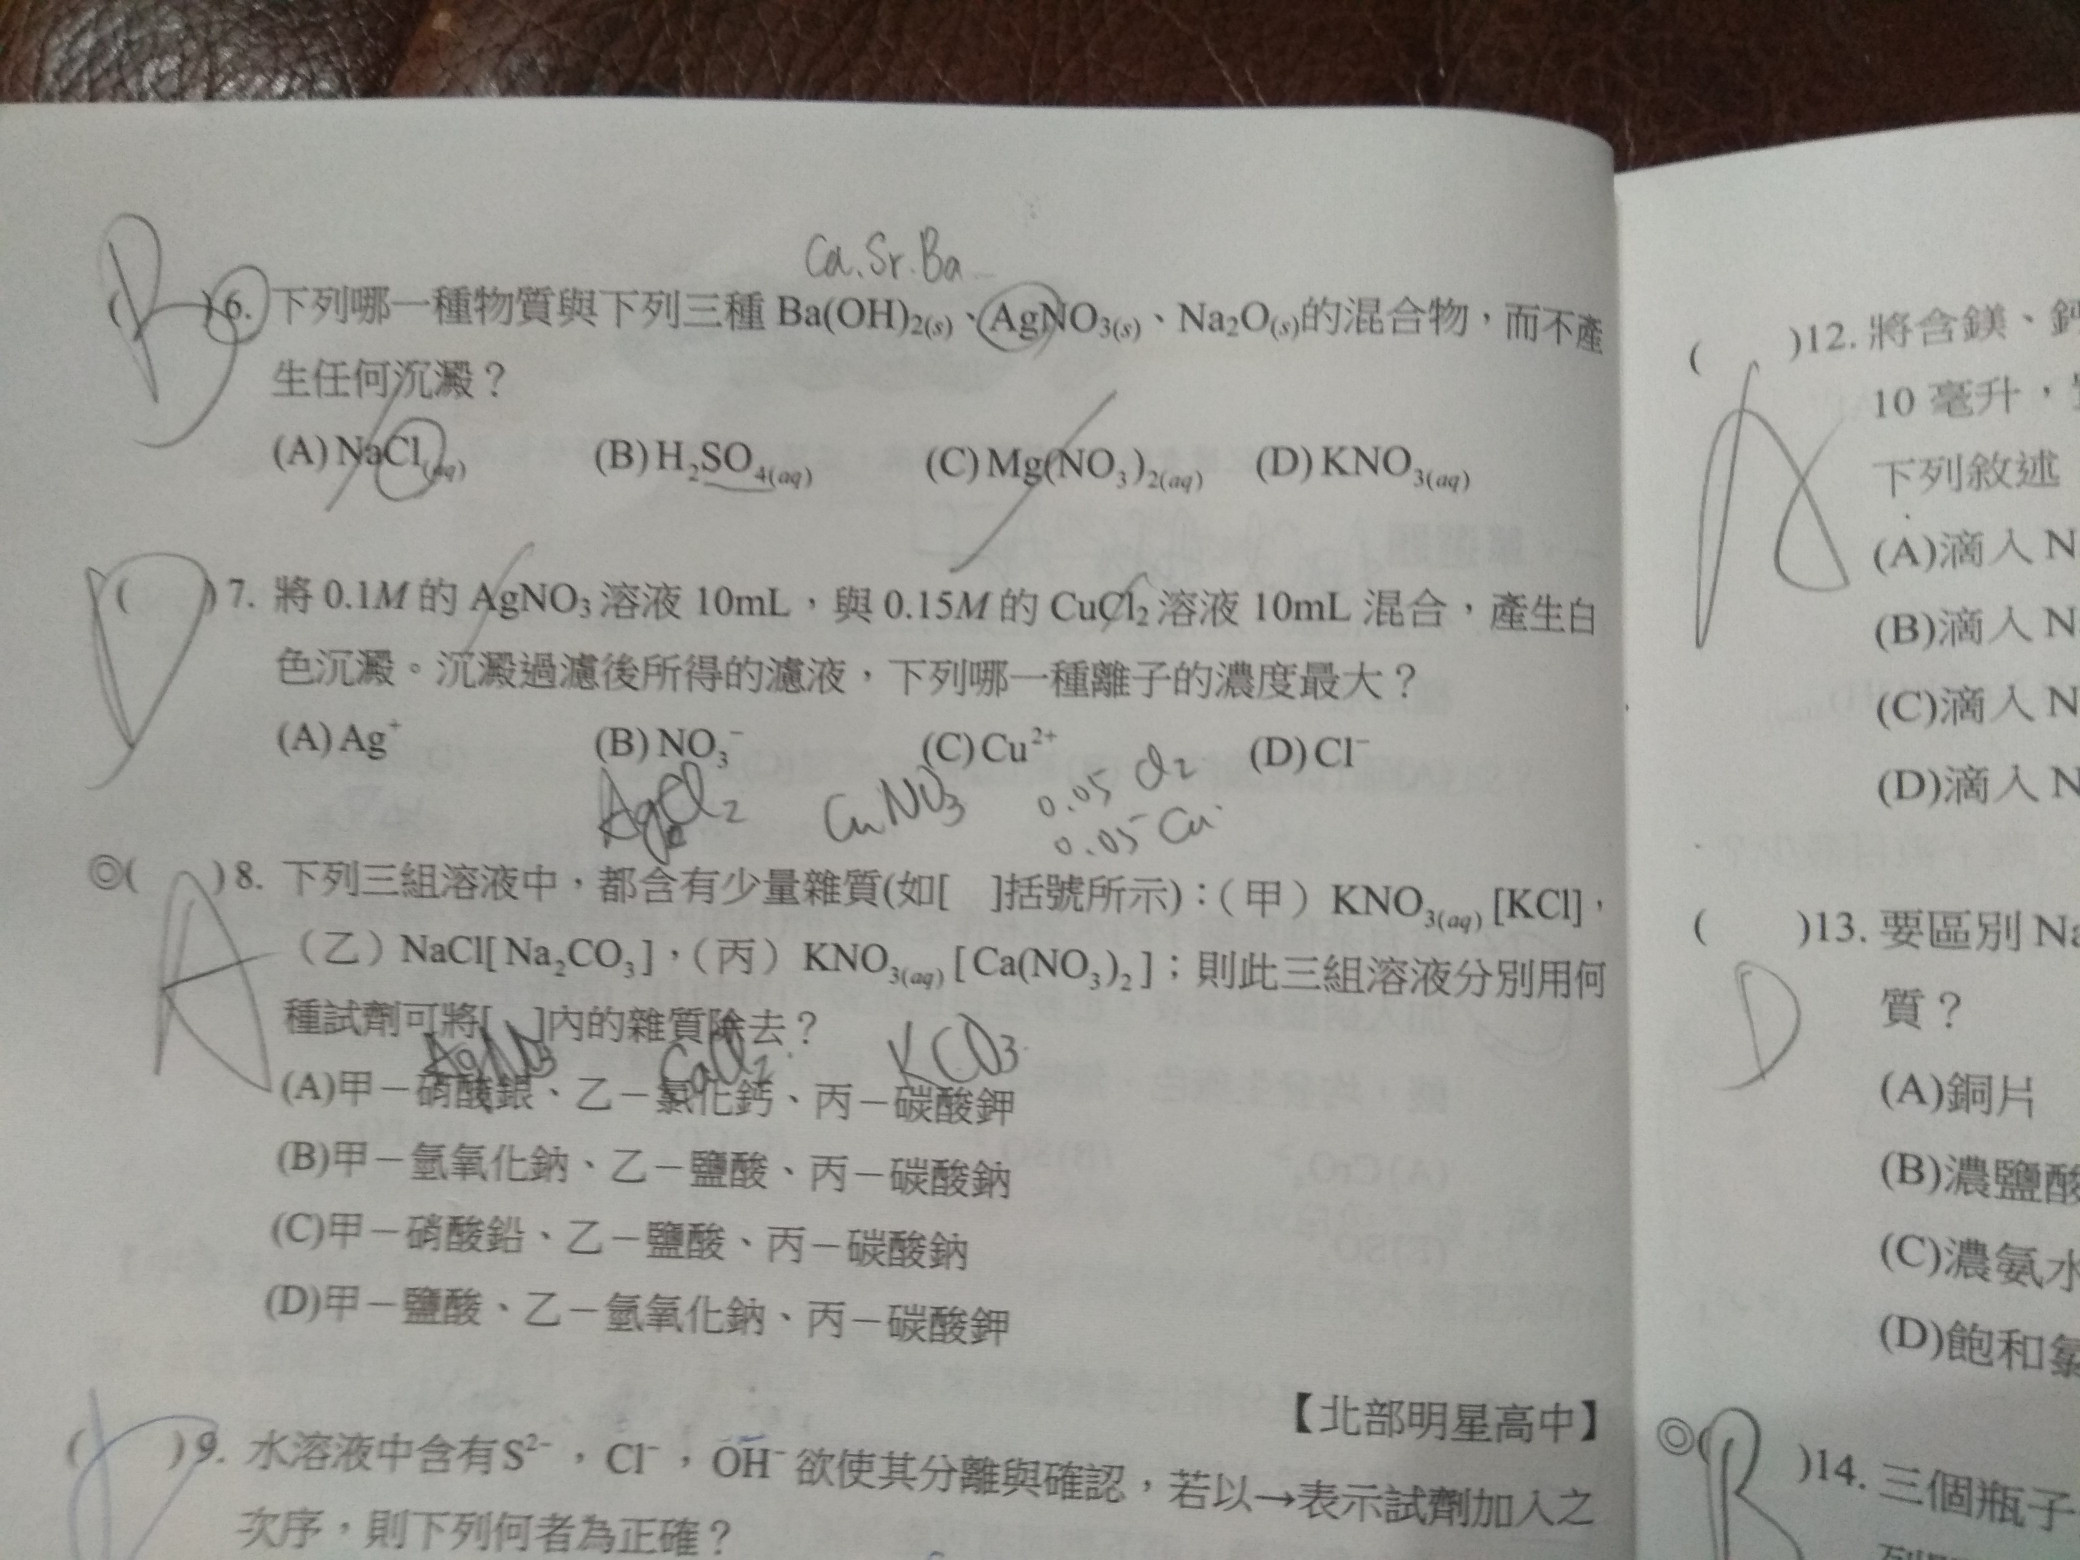 Ca.Sr.Ba
B
( )6. 下列哪一種物質與下列三種 Ba(OH)₂₍s₎、AgNO₃₍s₎、Na₂O₍s₎的混合物，而不產
生任何沉澱？
(A) NaCl₍aq₎ (B) H₂SO₄₍aq₎ (C) Mg(NO₃)₂₍aq₎ (D) KNO₃₍aq₎
D
( )7. 將 0.1M 的 AgNO₃ 溶液 10mL，與 0.15M 的 CuCl₂ 溶液 10mL 混合，產生白
色沉澱。沉澱過濾後所得的濾液，下列哪一種離子的濃度最大？
(A) Ag⁺ (B) NO₃⁻ (C) Cu²⁺ (D) Cl⁻
AgCl₂ CuNO₃ 0.05 Cl₂
0.05 Cu
A
◎( )8. 下列三組溶液中，都含有少量雜質(如[ ]括號所示)：（甲）KNO₃₍aq₎ [KCl]，
（乙）NaCl[Na₂CO₃]，（丙）KNO₃₍aq₎ [Ca(NO₃)₂]；則此三組溶液分別用何
種試劑可將[ ]內的雜質除去？
AgNO₃ CaCl₂ KCO₃
(A)甲－硝酸銀、乙－氯化鈣、丙－碳酸鉀
(B)甲－氫氧化鈉、乙－鹽酸、丙－碳酸鈉
(C)甲－硝酸鉛、乙－鹽酸、丙－碳酸鈉
(D)甲－鹽酸、乙－氫氧化鈉、丙－碳酸鉀
【北部明星高中】
( )9. 水溶液中含有S²⁻，Cl⁻，OH⁻欲使其分離與確認，若以→表示試劑加入之
次序，則下列何者為正確？
A
( )12. 將含鎂、
10 毫升，
下列敘述
(A)滴入 N
(B)滴入 N
(C)滴入 N
(D)滴入 N
D
( )13. 要區別 Na
質？
(A)銅片
(B)濃鹽酸
(C)濃氨水
(D)飽和
B
◎( )14. 三個瓶子